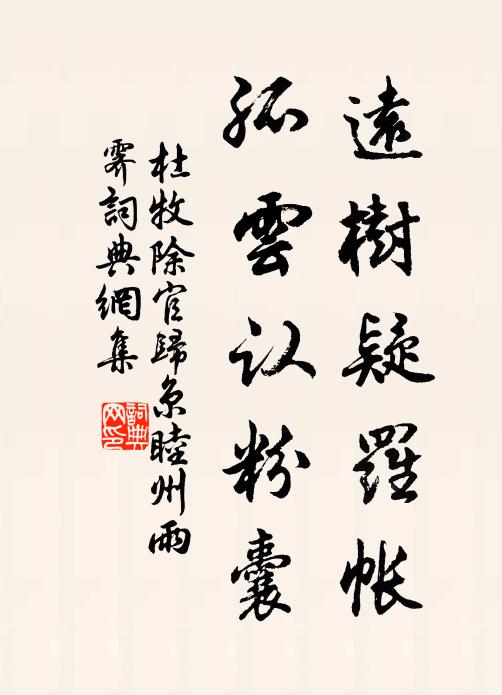 遠樹疑羅帳
孤雲认粉囊
杜牧除官歸京睦州雨
霽詞典網集
詞典
网印